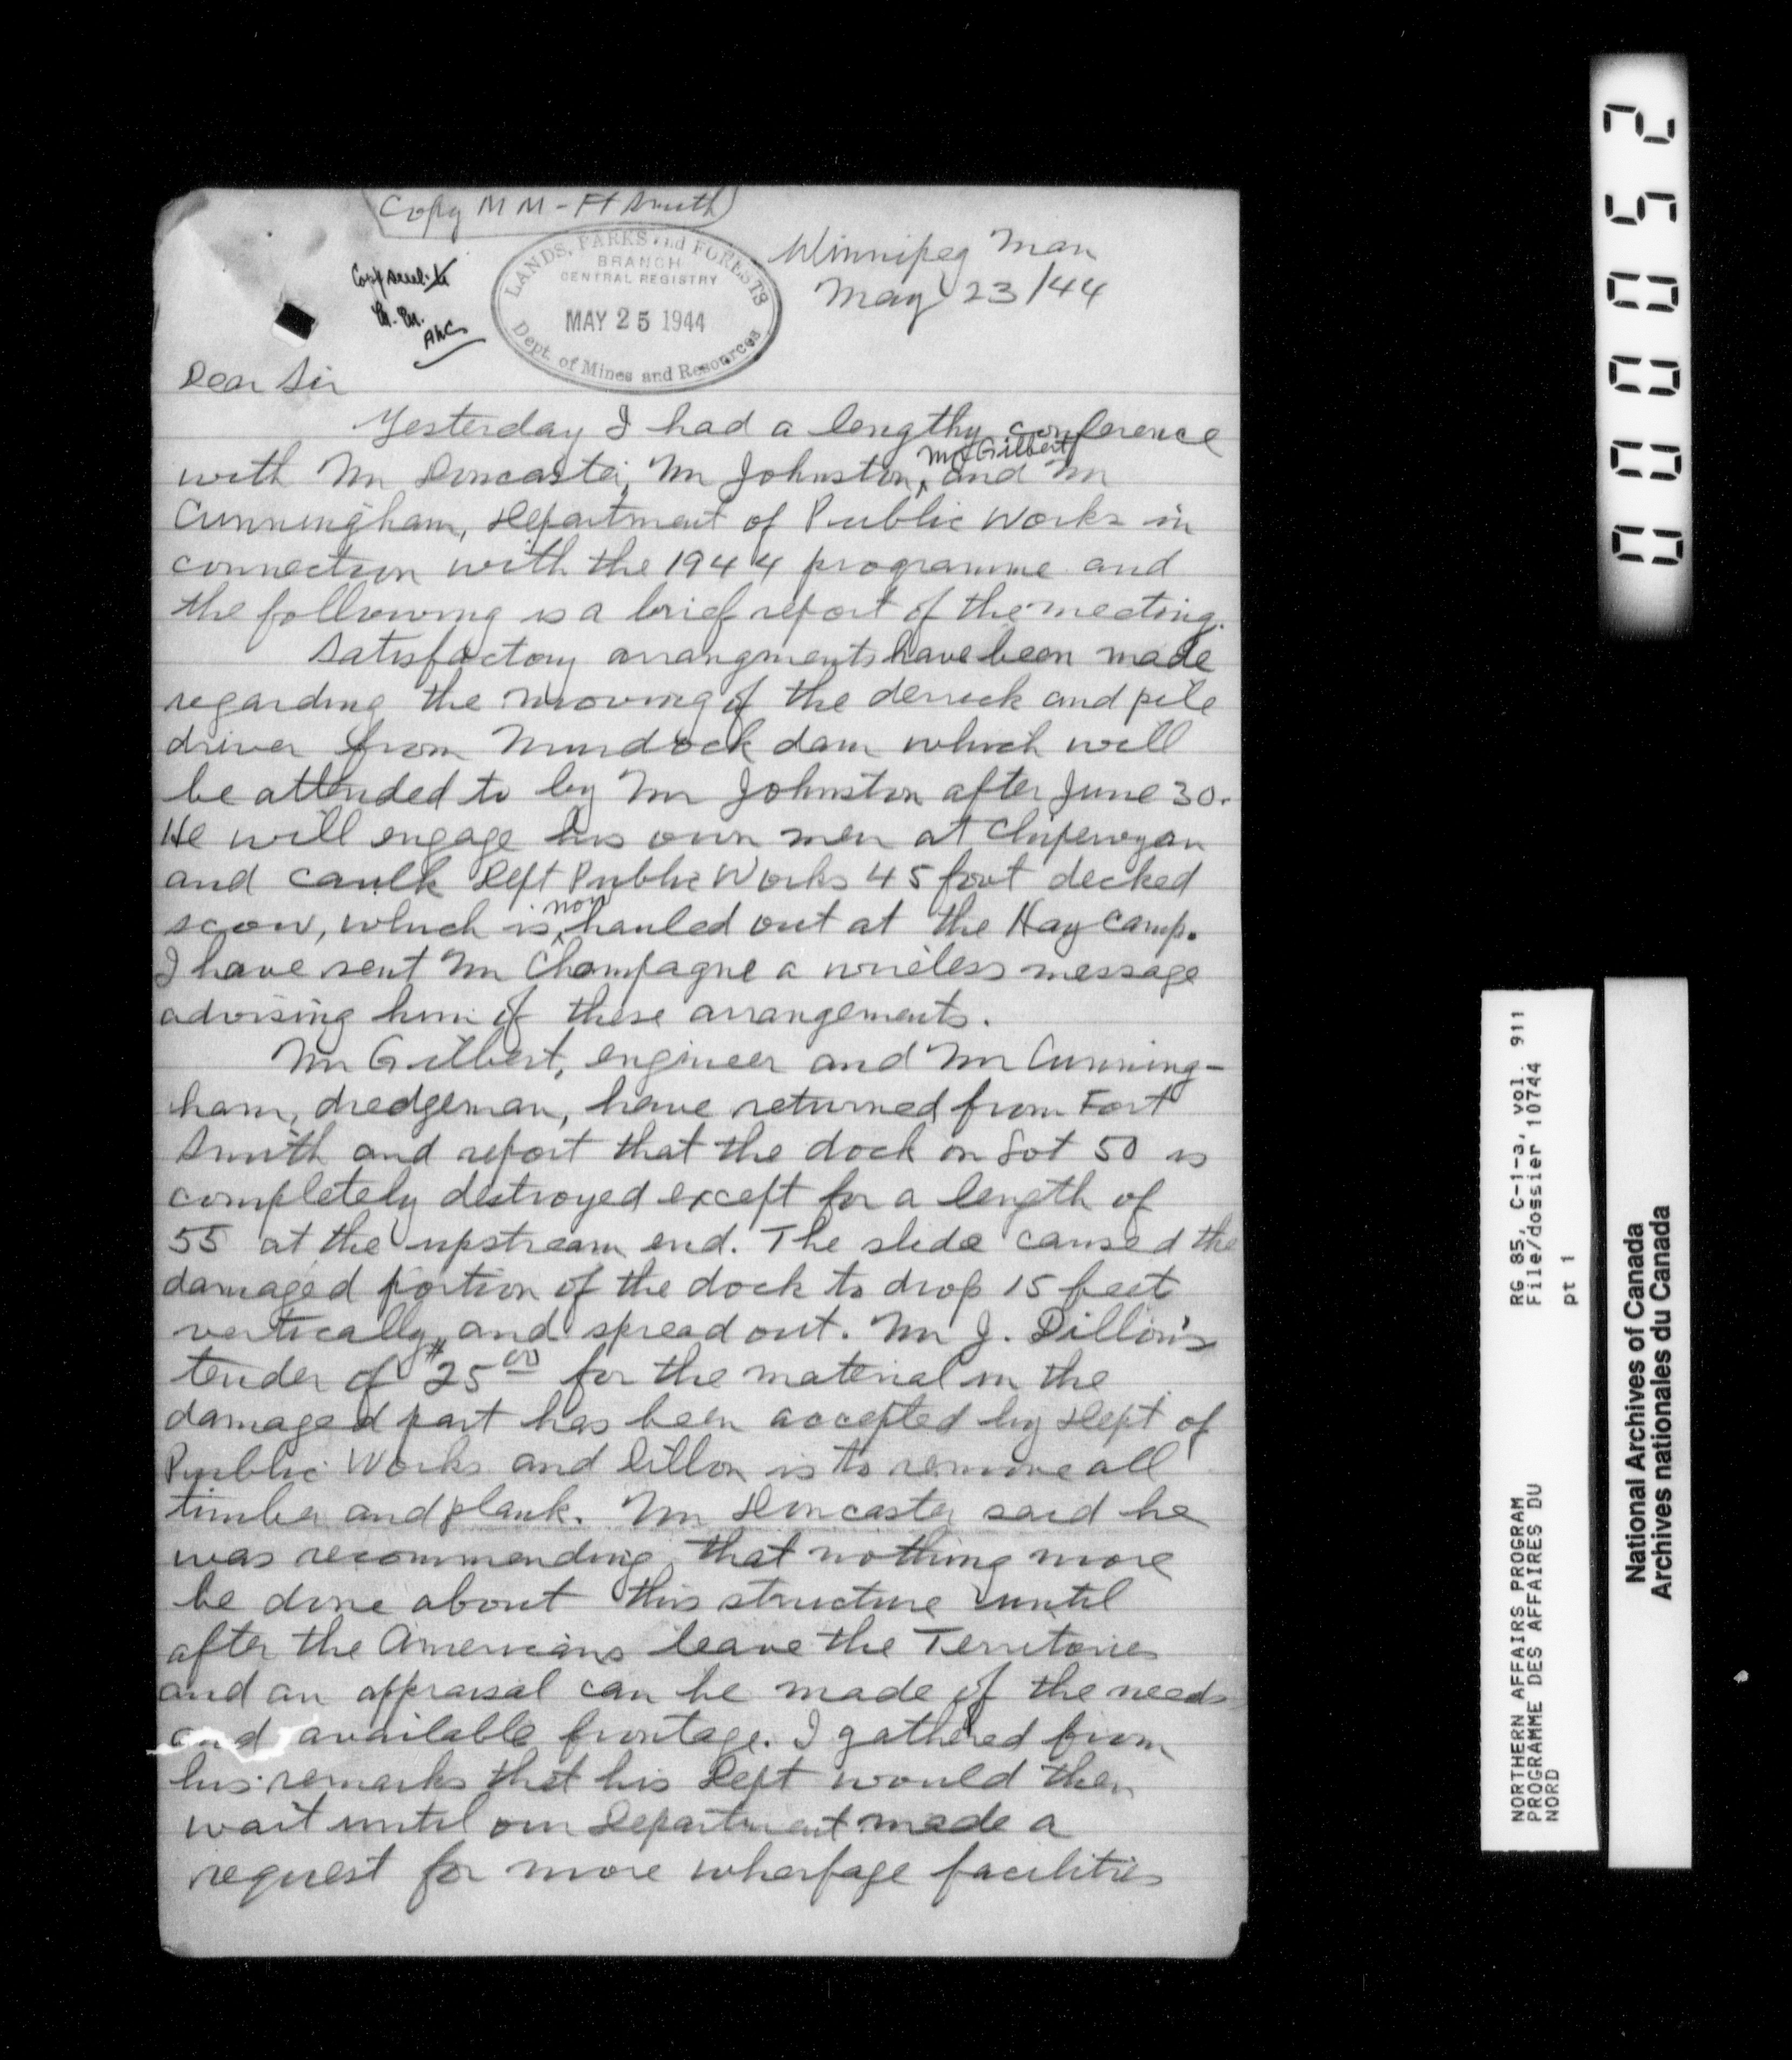 Copy MM - Ft Smith
Winnipeg Man
May 23/44
Copy sent to
M. M.
LANDS, PARKS and FORESTS
BRANCH
CENTRAL REGISTRY
MAY 25 1944
Dept. of Mines and Resources
Dear Sir
Yesterday I had a lengthy conference
with Mr Doncaster, Mr Johnston, Mr Gilbert and Mr
Cunningham, Department of Public Works in
connection with the 1944 programme and
the following is a brief report of the meeting.
Satisfactory arrangments have been made
regarding the moving of the derrick and pile
driver from Murdock dam which will
be attended to by Mr Johnston after June 30.
He will engage his own men at Chipewyan
and caulk Dept Public Works 45 foot decked
scow, which is now hauled out at the Hay Camp.
I have sent Mr Champagne a wireless message
advising him of these arrangements.
Mr Gilbert, engineer and Mr Cunning-
ham, dredgeman, have returned from Fort
Smith and report that the dock on Lot 50 is
completely destroyed except for a length of
55 at the upstream end. The slide caused the
damaged portion of the dock to drop 15 feet
vertically, and spread out. Mr J. Dillon's
tender of $25 00 for the material in the
damaged part has been accepted by Dept of
Public Works and Dillon is to remove all
timber and plank. Mr Doncaster said he
was recommending that nothing more
be done about this structure until
after the Americans leave the Territories
and an appraisal can be made of the needs
and available frontage. I gathered from
his remarks that his Dept would then
wait until our Department made a
request for more wharfage facilities
00052
NORTHERN AFFAIRS PROGRAM
PROGRAMME DES AFFAIRES DU
NORD
RG 85, C-1-a, vol. 911
File/dossier 10744
pt 1
National Archives of Canada
Archives nationales du Canada